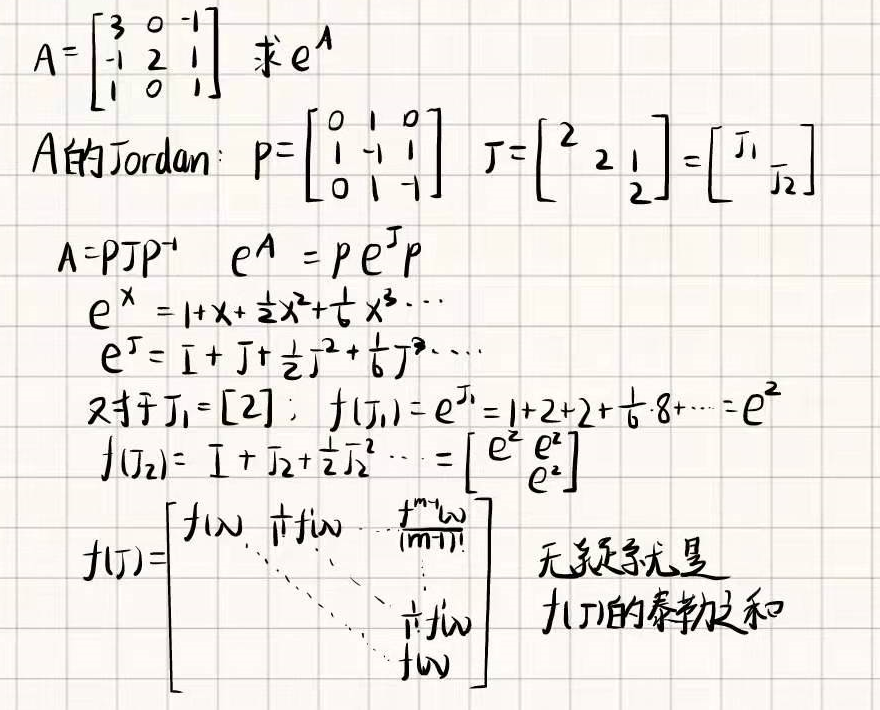 A = [3 0 -1; -1 2 1; 1 0 1] 求 e^A
A的Jordan: P = [0 1 0; 1 -1 1; 0 1 -1] J = [2; 2 1; 2] = [J₁; J₂]
A = PJP⁻¹ e^A = P e^J P
e^x = 1 + x + 1/2 x² + 1/6 x³ ...
e^J = I + J + 1/2 J² + 1/6 J³ ....
对于J₁ = [2]; f(J₁) = e^J₁ = 1 + 2 + 2 + 1/6 · 8 + ... = e²
f(J₂) = I + J₂ + 1/2 J₂² ... = [e² e²; e²]
f(J) = [f(λ) 1/1! f'(λ) ... f^(m-1)(λ)/(m-1)!; 1/1! f'(λ); f(λ)]
无疑就是
f(J)的泰勒之和